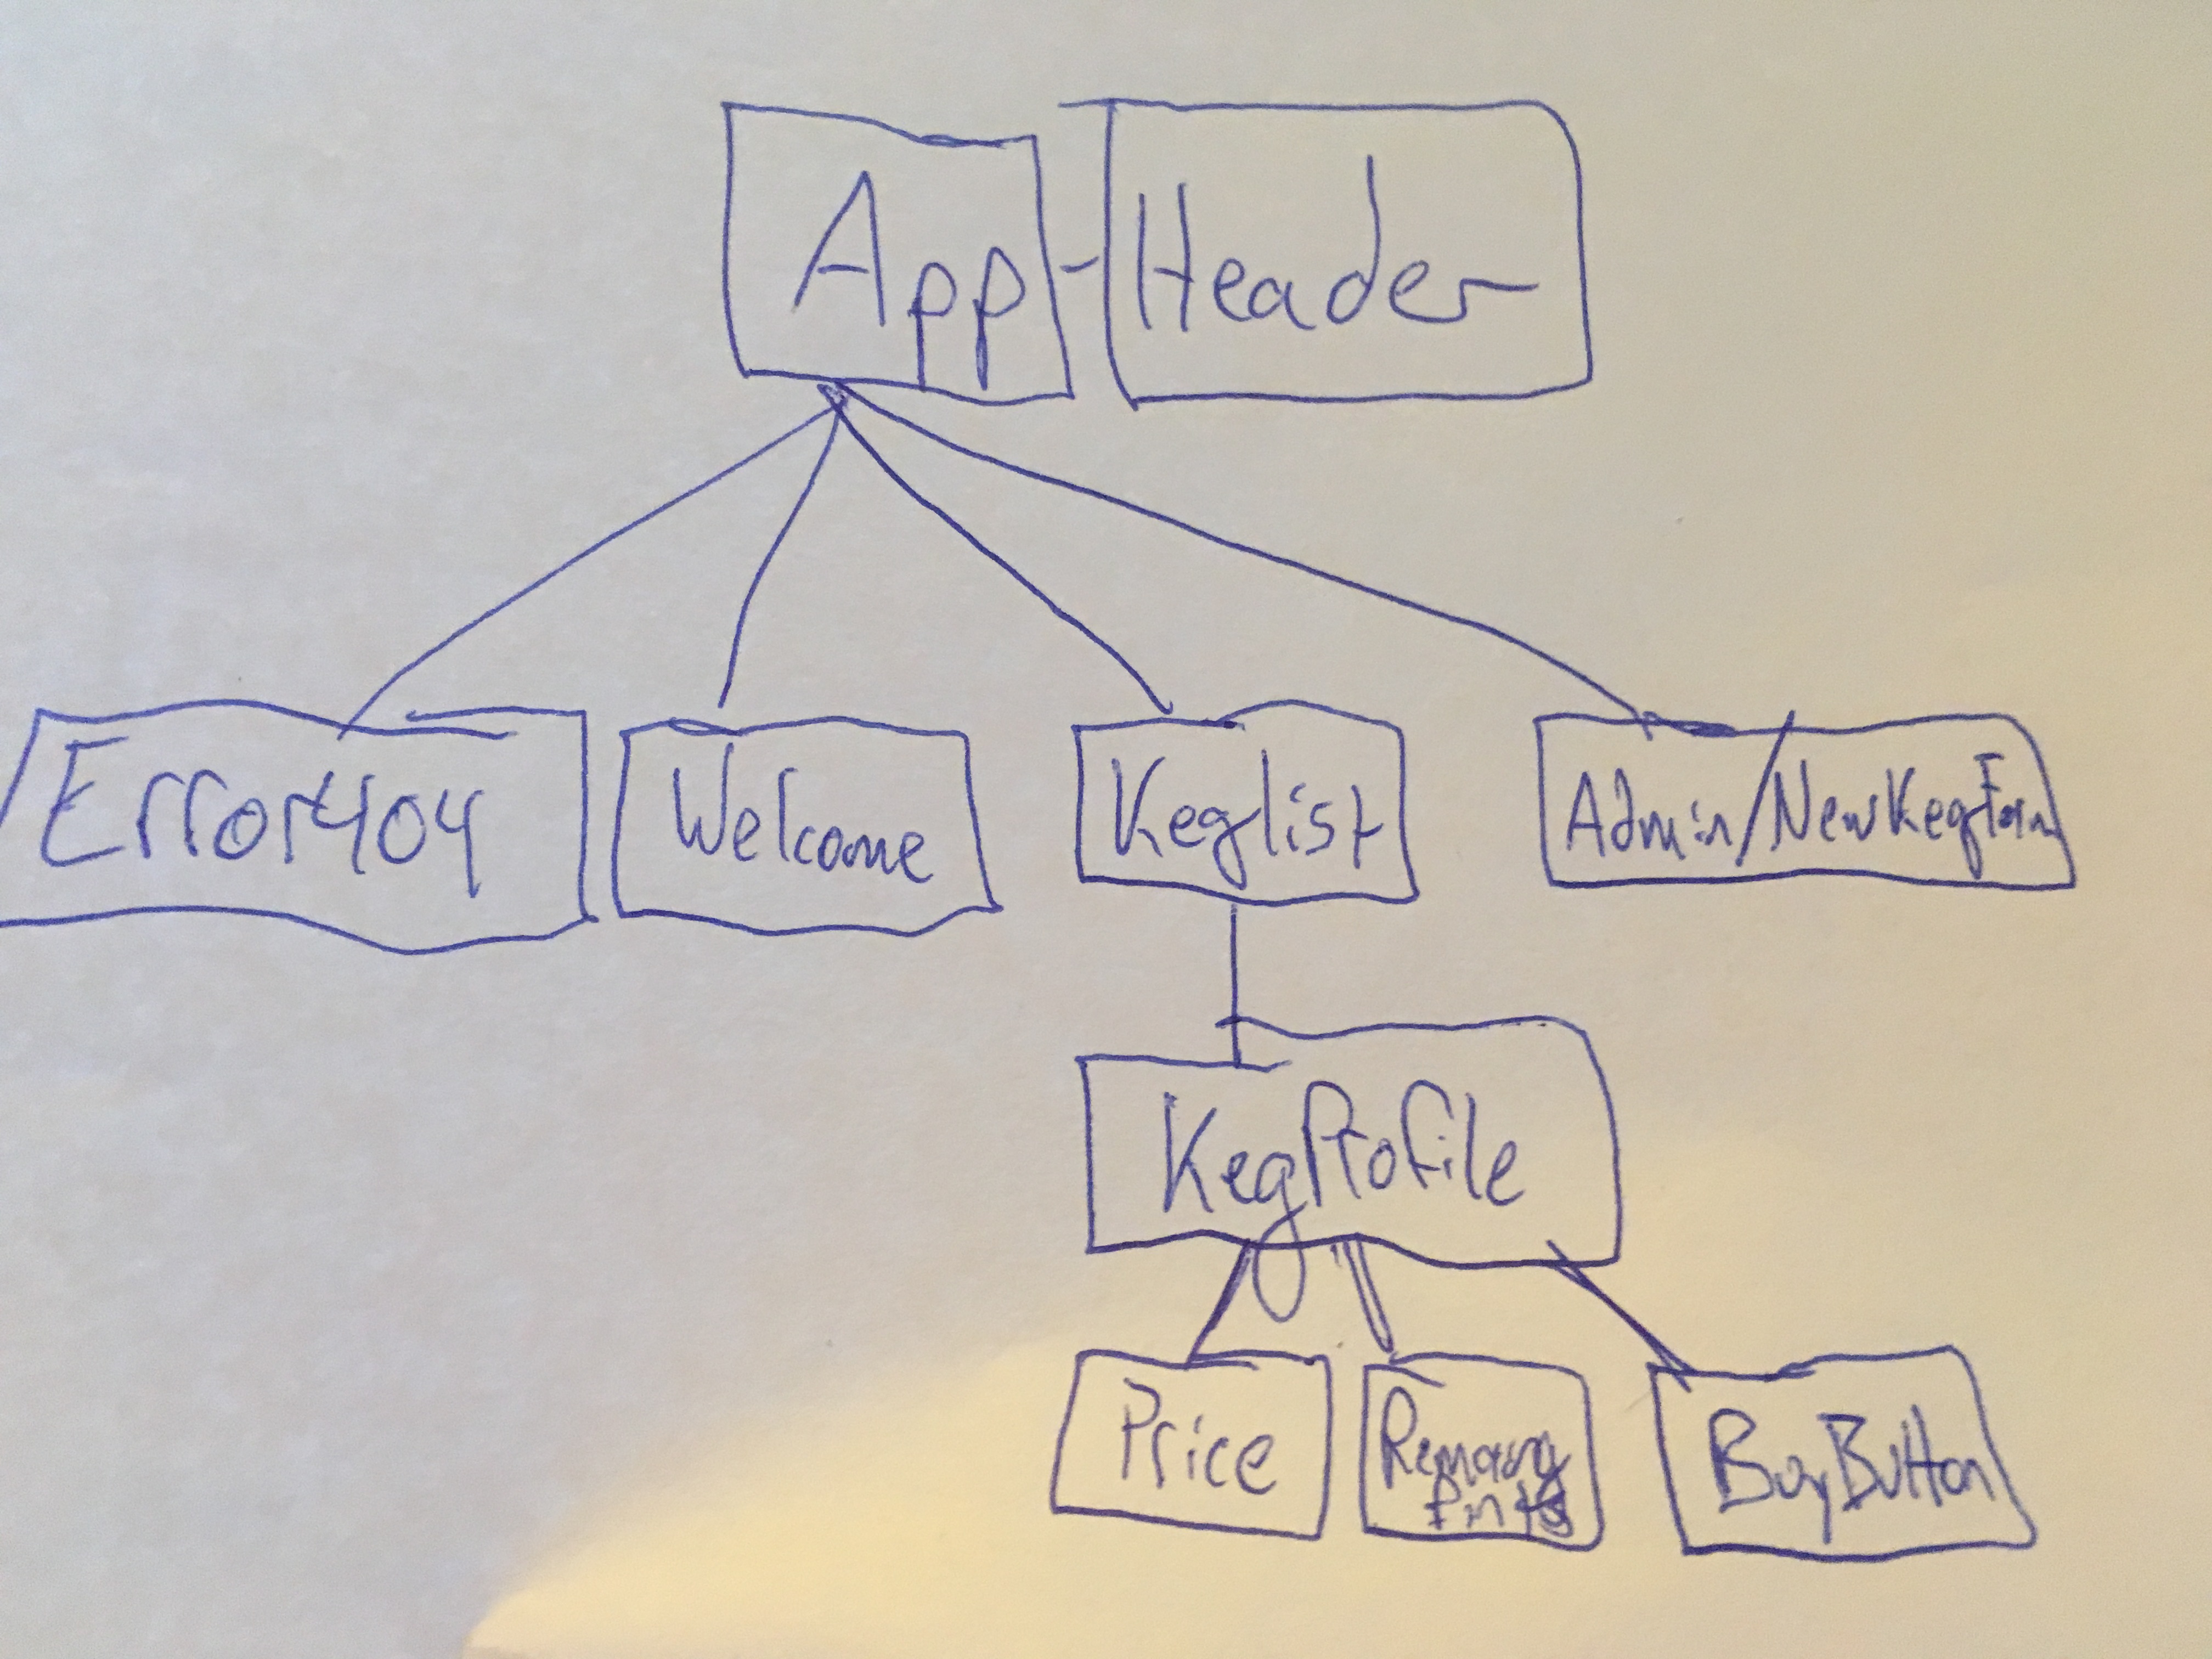 App
Header
Error404
Welcome
Keglist
Admin/NewKegForm
KegProfile
Price
Pints
BuyButton